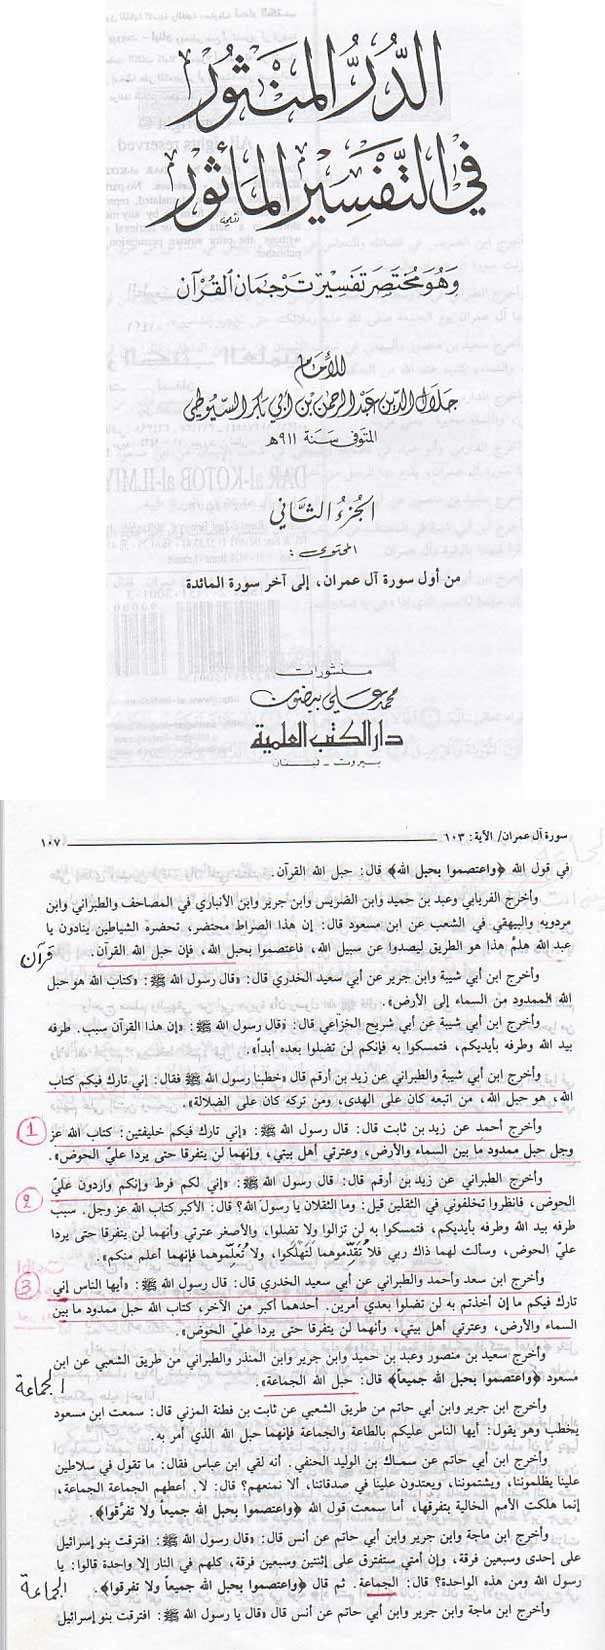 الدُّرُّ المنثُور
في التَّفسِير المأثُور
وَهُوَ مُختَصَر تَفسِير تَرجمَان القُرآن
للإمَام
جلال الدِّين عبد الرحمن بن أبي بكر السّيوطي
المتوفى سَنَة ٩١١هـ
الجُزءُ الثَّاني
المحتوى:
من أول سورة آل عمران، إلى آخر سورة المائدة
منشورات
محمد علي بيضون
دار الكتب العلمية
بيروت - لبنان
سورة آل عمران/ الآية: ١٠٣ ١٠٧
في قول الله ﴿واعتصموا بحبل الله﴾ قال: حبل الله القرآن.
وأخرج الفريابي وعبد بن حميد وابن الضريس وابن جرير وابن الأنباري في المصاحف والطبراني وابن
مردويه والبيهقي في الشعب عن ابن مسعود قال: إن هذا الصراط محتضر، تحضره الشياطين ينادون يا
عبد الله هلمَّ هذا هو الطريق ليصدوا عن سبيل الله، فاعتصموا بحبل الله، فإن حبل الله القرآن.
قرآن
وأخرج ابن أبي شيبة وابن جرير عن أبي سعيد الخدري قال: «قال رسول الله ﷺ: «كتاب الله هو حبل
الله الممدود من السماء إلى الأرض».
وأخرج ابن أبي شيبة عن أبي شريح الخزاعي قال: «قال رسول الله ﷺ: «إن هذا القرآن سبب. طرفه
بيد الله وطرفه بأيديكم، فتمسكوا به فإنكم لن تضلوا بعده أبداً».
وأخرج ابن أبي شيبة والطبراني عن زيد بن أرقم قال «خطبنا رسول الله ﷺ فقال: إني تارك فيكم كتاب
الله، هو حبل الله، من اتبعه كان على الهدى، ومن تركه كان على الضلالة».
1
وأخرج أحمد عن زيد بن ثابت قال: قال رسول الله ﷺ: «إني تارك فيكم خليفتين: كتاب الله عز
وجل حبل ممدود ما بين السماء والأرض، وعترتي أهل بيتي، وإنهما لن يتفرقا حتى يردا عليّ الحوض».
وأخرج الطبراني عن زيد بن أرقم قال: قال رسول الله ﷺ: «إني لكم فرط وإنكم واردون عليّ
2
الحوض، فانظروا تخلفوني في الثقلين قيل: وما الثقلان يا رسول الله؟ قال: الأكبر كتاب الله عز وجل. سبب
طرفه بيد الله وطرفه بأيديكم، فتمسكوا به لن تزالوا ولا تضلوا، والأصغر عترتي وأنهما لن يتفرقا حتى يردا
عليّ الحوض، وسألت لهما ذاك ربي فلا تَقَدِّموهما لتهلكوا، ولا تُعَلِّموهما فإنهما أعلم منكم».
3
وأخرج ابن سعد وأحمد والطبراني عن أبي سعيد الخدري قال: قال رسول الله ﷺ: «أيها الناس إني
تارك فيكم ما إن أخذتم به لن تضلوا بعدي أمرين. أحدهما أكبر من الآخر، كتاب الله حبل ممدود ما بين
السماء والأرض، وعترتي أهل بيتي، وأنهما لن يتفرقا حتى يردا عليّ الحوض».
وأخرج سعيد بن منصور وعبد بن حميد وابن جرير وابن المنذر والطبراني من طريق الشعبي عن ابن
مسعود ﴿واعتصموا بحبل الله جميعاً﴾ قال: حبل الله الجماعة».
الجماعة
وأخرج ابن جرير وابن أبي حاتم من طريق الشعبي عن ثابت بن فطنة المزني قال: سمعت ابن مسعود
يخطب وهو يقول: أيها الناس عليكم بالطاعة والجماعة فإنهما حبل الله الذي أمر به.
وأخرج ابن أبي حاتم عن سماك بن الوليد الحنفي. أنه لقي ابن عباس فقال: ما تقول في سلاطين
علينا يظلموننا، ويشتموننا، ويعتدون علينا في صدقاتنا، ألا نمنعهم؟ قال: لا. أعطهم الجماعة الجماعة،
إنما هلكت الأمم الخالية بتفرقها، أما سمعت قول الله ﴿واعتصموا بحبل الله جميعاً ولا تفرَّقوا﴾.
وأخرج ابن ماجة وابن جرير وابن أبي حاتم عن أنس قال: «قال رسول الله ﷺ: افترقت بنو إسرائيل
على إحدى وسبعين فرقة، وإن أمتي ستفترق على إثنتين وسبعين فرقة، كلهم في النار إلا واحدة قالوا: يا
رسول الله ومن هذه الواحدة؟ قال: الجماعة. ثم قال ﴿واعتصموا بحبل الله جميعاً ولا تفرقوا﴾.
الجماعة
وأخرج ابن ماجة وابن جرير وابن أبي حاتم عن أنس قال «قال يا رسول الله ﷺ: افترقت بنو إسرائيل